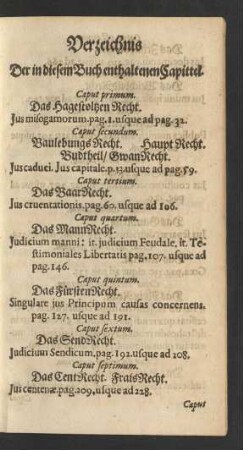 Verzeichnis
Der in diesem Buch enthaltenen Capittel.
Caput primum.
Das Hagestoltzen Recht.
Jus misogamorum. pag. 1. usque ad pag. 32.
Caput secundum.
Baulebungs Recht. Haupt Recht.
Budtheil/ Gwan Recht.
Jus caduci. Jus capitale. p. 33. usque ad pag. 59.
Caput tertium.
Das Baar Recht.
Jus cruentationis. pag. 60. usque ad 106.
Caput quartum.
Das Mann Recht.
Judicium manni: it. judicium Feudale, it. Te-
stimoniales Libertatis pag. 107. usque ad
pag. 146.
Caput quintum.
Das Fürsten Recht.
Singulare jus Principum causas concernens.
pag. 127. usque ad 191.
Caput sextum.
Das Send Recht.
Judicium Sendicum, pag. 192. usque ad 208.
Caput septimum.
Das Cent Recht. Frais Recht.
Jus centenæ. pag. 209. usque ad 228.
Caput